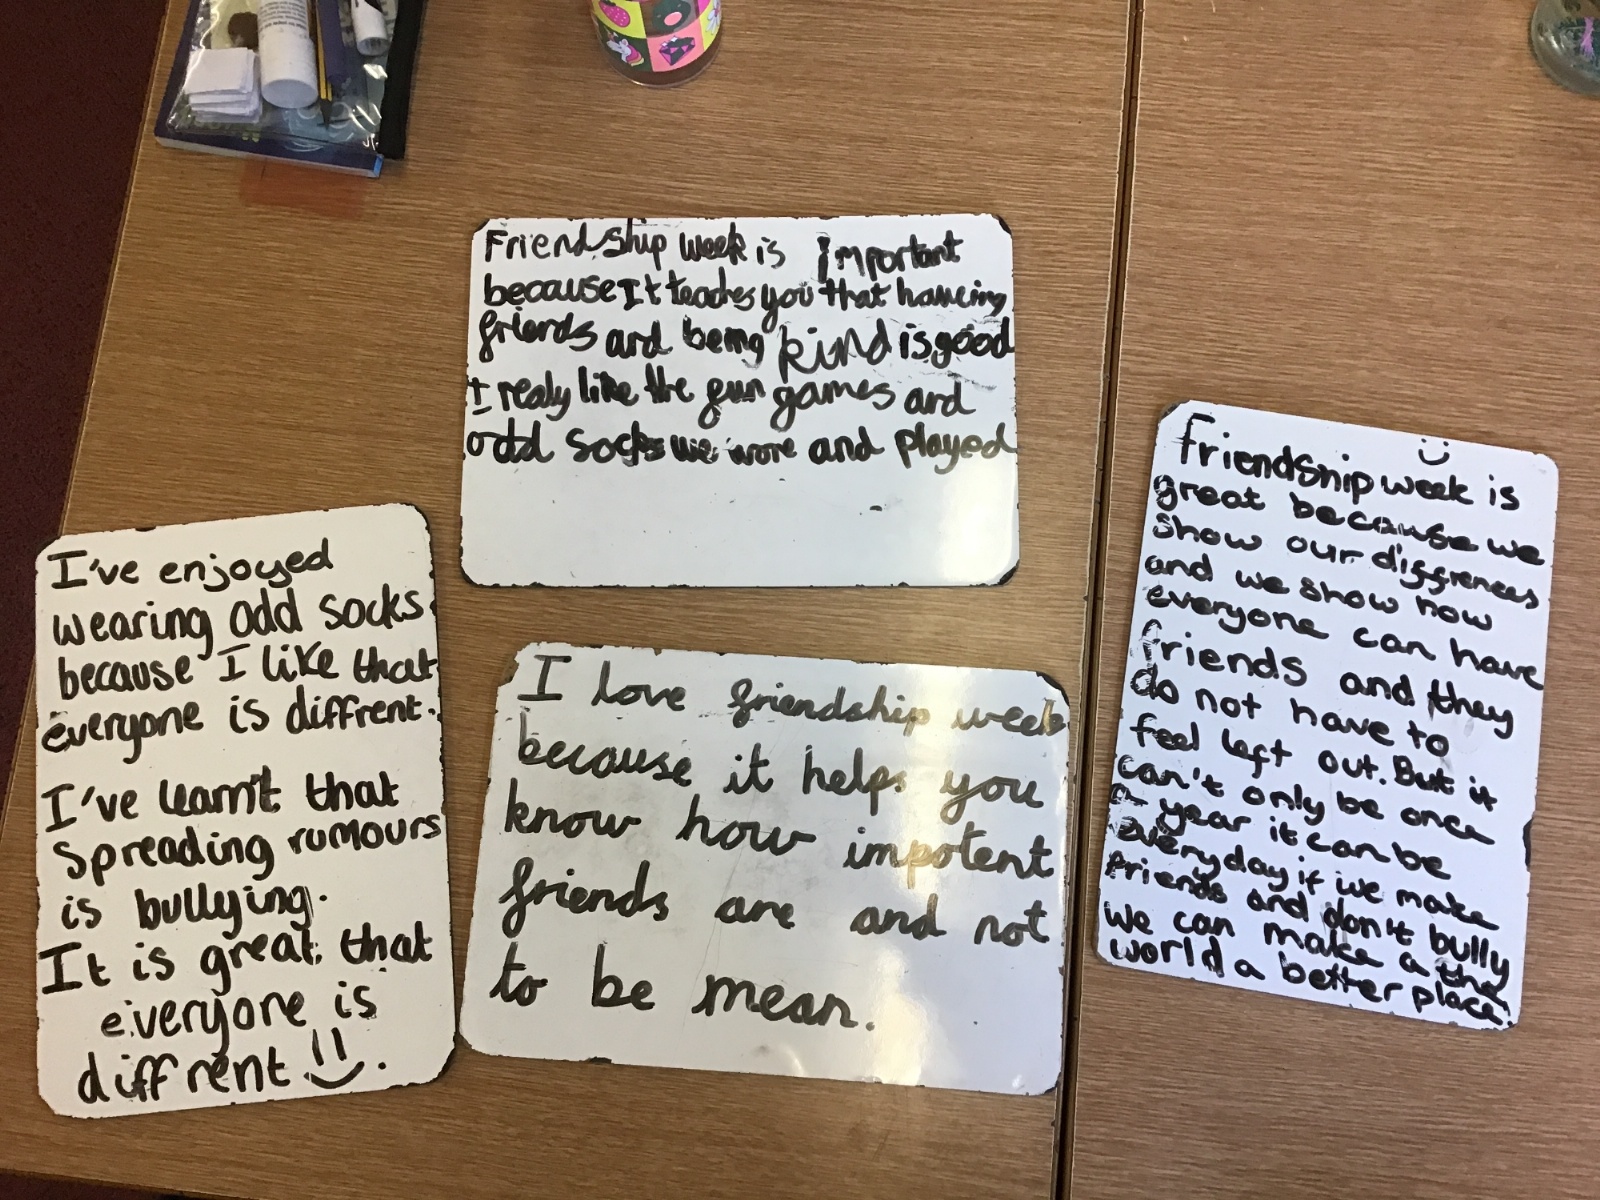 Friendship week is important
because It teaches you that haveing
friends and being kind is good
I realy like the fun games and
odd socks we wore and played
I've enjoyed
wearing odd socks
because I like that
everyone is diffrent.
I've learn't that
spreading rumours
is bullying.
It is great that
everyone is
diffrent
I love friendship week
because it helps you
know how impotent
friends are and not
to be mean.
Friendship week is
great because we
show our
and we show how
everyone can have
friends and they
do not have to
feel left out. But it
can't only be once
a year it can be
everyday if we make
friends and don't bully
we can make a the
world a better place.